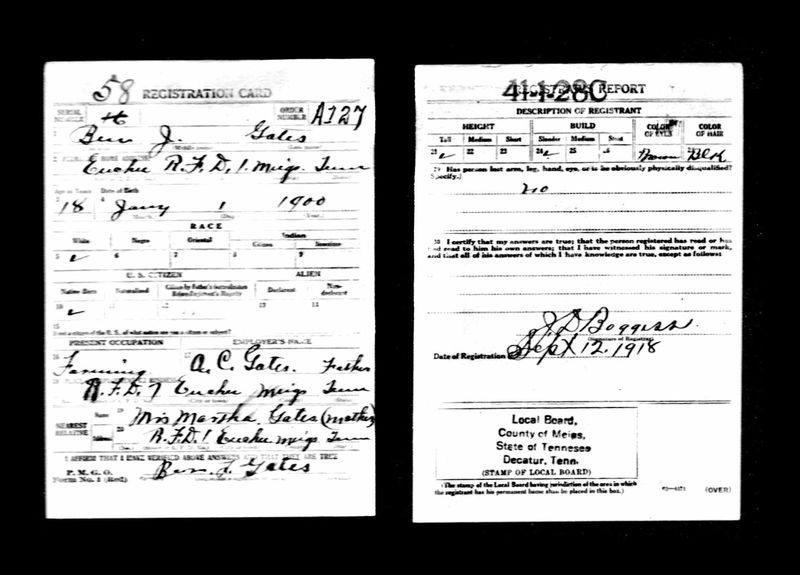 58 REGISTRATION CARD
SERIAL NUMBER
ORDER NUMBER A127
Ben J. Gates
Euchee R.F.D. 1. Meigs Tenn
Age in Years Date of Birth
18 Jany 1 1900
RACE
White Negro Oriental Indian
Citizen
5 6 7 8 9
U. S. CITIZEN ALIEN
Native Born Naturalized Citizen by Father's Naturalization Before Registrant's Majority Declarant Non-declarant
10 11 12 13 14
15
If not a citizen of the U. S., of what nation are you a citizen or subject?
PRESENT OCCUPATION EMPLOYER'S NAME
16 Farming 17 A. C. Gates. Father
R.F.D. 1 Euchee Meigs Tenn
NEAREST RELATIVE Name 19 Mrs Martha Gates (mother)
Address 20 R.F.D. 1 Euchee Meigs Tenn
I AFFIRM THAT I HAVE VERIFIED ABOVE ANSWERS AND THAT THEY ARE TRUE
P. M. G. O.
Form No. 1 (Red) Ben J. Gates
41-1-28C
REGISTRAR'S REPORT
DESCRIPTION OF REGISTRANT
HEIGHT BUILD COLOR OF EYES COLOR OF HAIR
Tall Medium Short Slender Medium Stout
21 22 23 24 25 26 Brown Blck
29 Has person lost arm, leg, hand, eye, or is he obviously physically disqualified?
(Specify.)
no
30 I certify that my answers are true; that the person registered has read or has
had read to him his own answers; that I have witnessed his signature or mark,
and that all of his answers of which I have knowledge are true, except as follows:
J. D. Boggess
(Signature of Registrar)
Date of Registration Sept 12, 1918
Local Board,
County of Meigs,
State of Tennesee
Decatur, Tenn.
(STAMP OF LOCAL BOARD)
(The stamp of the Local Board having jurisdiction of the area in which
the registrant has his permanent home shall be placed in this box.)
(OVER)